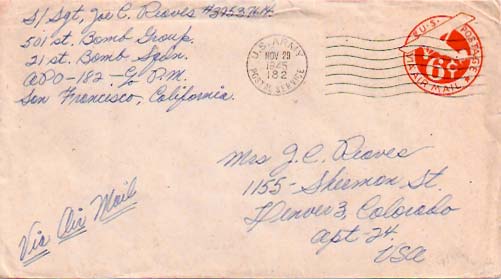 S/Sgt, Joe C. Reaves #39537614.
501 st. Bomb Group.
21 st. Bomb Sqdn.
APO-182-℅ P.M.
San Francisco, California.
U.S. ARMY
NOV 29
1945
182
POSTAL SERVICE
U.S. POSTAGE
6¢
VIA AIR MAIL
Mrs J.C. Reaves
1155-Sherman St.
Denver 3, Colorado
Apt-24.
USA
Via Air Mail